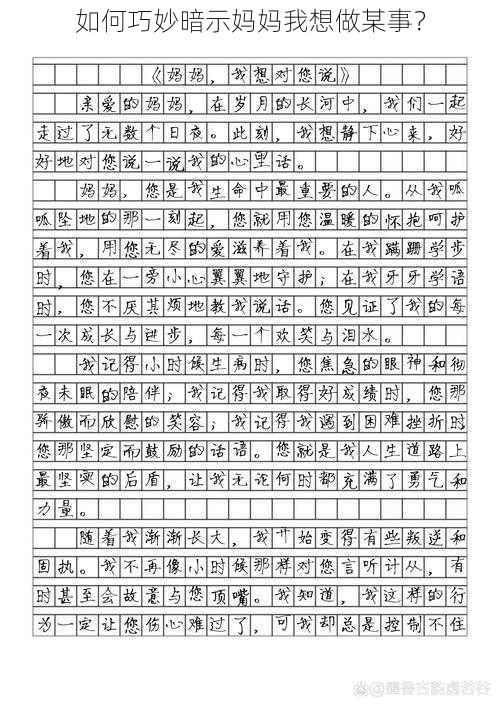 如何巧妙暗示妈妈我想做某事？
《妈妈，我想对您说》
亲爱的妈妈，在岁月的长河中，我们一起
走过了无数个日夜。此刻，我想静下心来，好
好地对您说一说我的心里话。
妈妈，您是我生命中最重要的人。从我呱
呱坠地的那一刻起，您就用您温暖的怀抱呵护
着我，用您无尽的爱滋养着我。在我蹒跚学步
时，您在一旁小心翼翼地守护；在我牙牙学语
时，您不厌其烦地教我说话。您见证了我的每
一次成长与进步，每一个欢笑与泪水。
我记得小时候生病时，您焦急的眼神和彻
夜未眠的陪伴；我记得我取得好成绩时，您那
骄傲而欣慰的笑容；我记得我遇到困难挫折时
您那坚定而鼓励的话语。您就是我人生道路上
最坚实的后盾，让我无论何时都充满了勇气和
力量。
随着我渐渐长大，我开始变得有些叛逆和
固执。我不再像小时候那样对您言听计从，有
时甚至会故意与您顶嘴。我知道，我这样的行
为一定让您伤心难过了，可我却总是控制不住